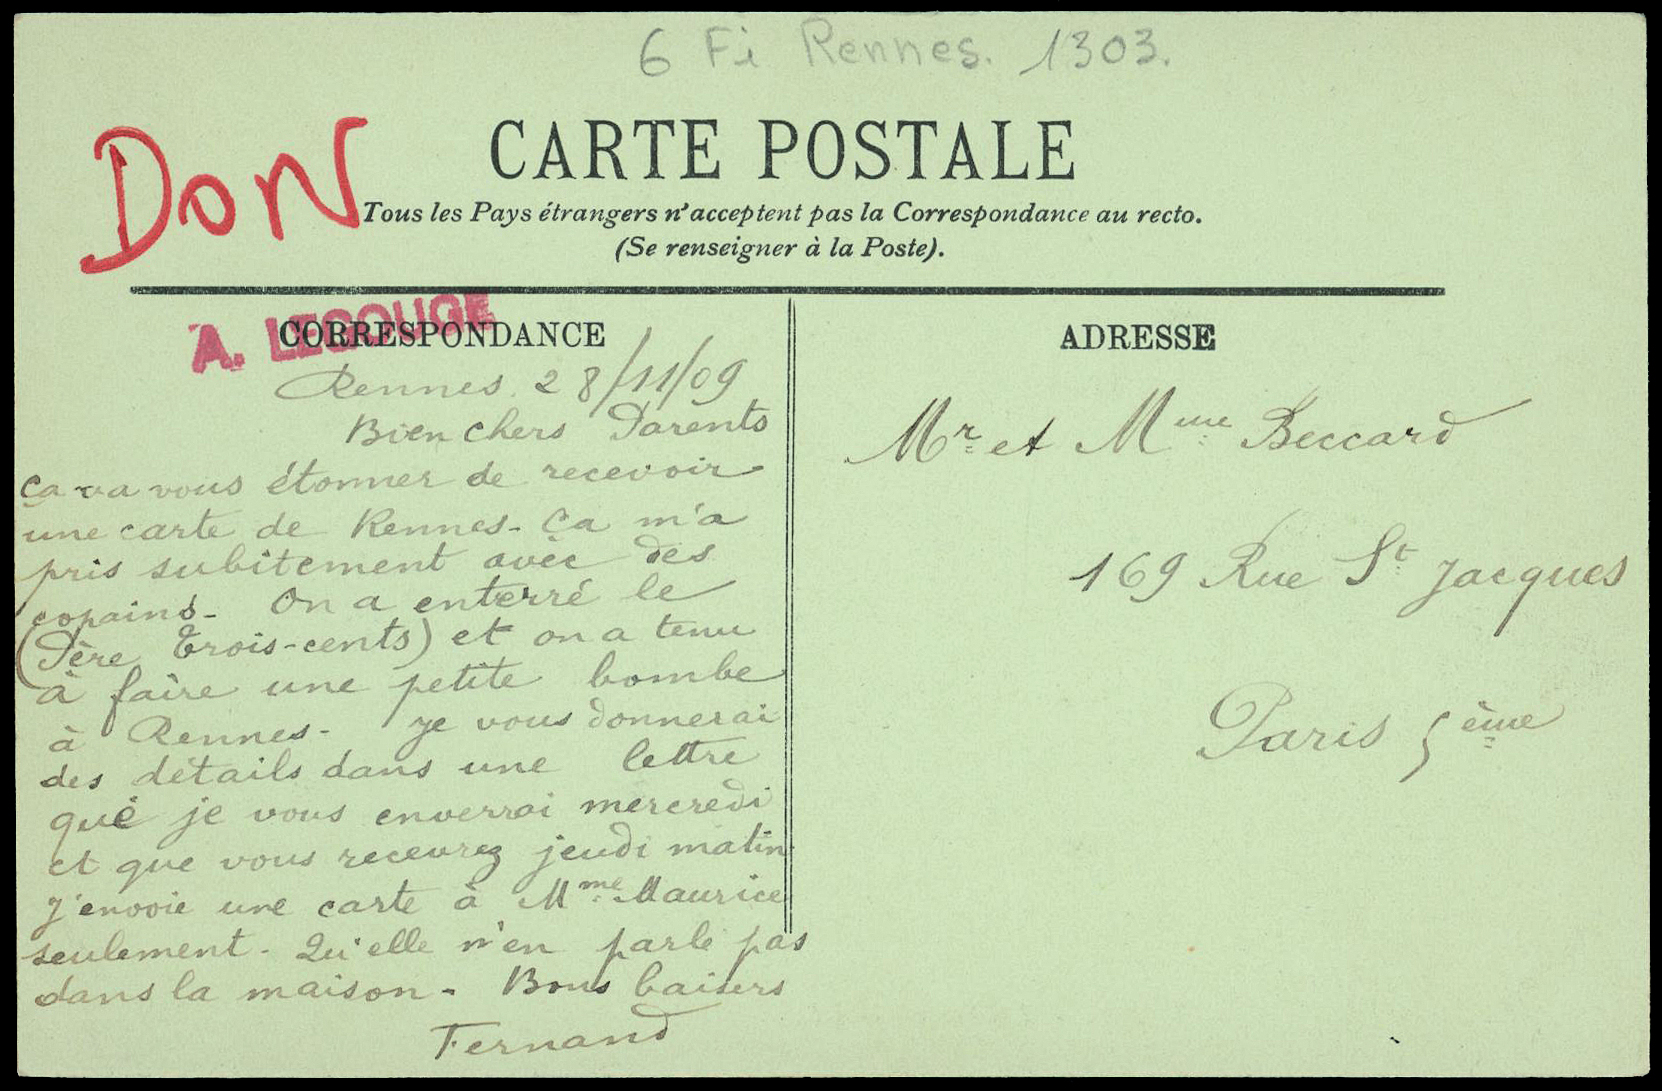 6 Fi Rennes. 1303.
DON
CARTE POSTALE
Tous les Pays étrangers n'acceptent pas la Correspondance au recto.
(Se renseigner à la Poste).
A. LEGOUGE
CORRESPONDANCE
Rennes 28/11/09
Bien chers Parents
ça va vous étonner de recevoir
une carte de Rennes - ça m'a
pris subitement avec des
copains - On a enterré le
(Père Trois-cents) et on a tenu
à faire une petite bombe
à Rennes - je vous donnerai
des détails dans une lettre
que je vous enverrai mercredi
et que vous recevrez jeudi matin
j'envoie une carte à Mme Maurice
seulement - Qu'elle n'en parle pas
dans la maison - Bons baisers
Fernand
ADRESSE
Mr et Mme Beccard
169 Rue St Jacques
Paris 5ème